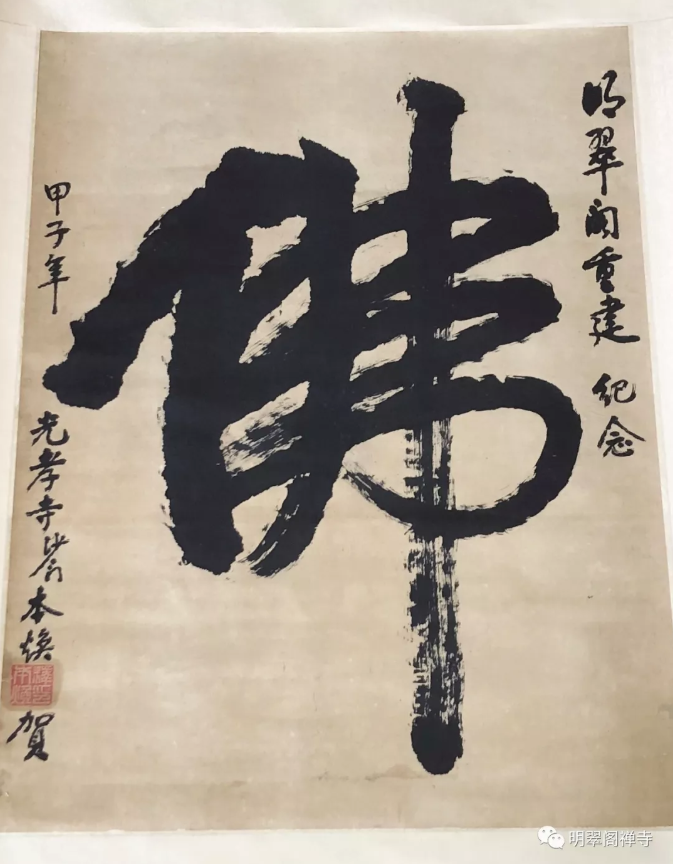 明翠阁重建 纪念
佛
甲子年
光孝寺沙门本焕
賀
明翠阁禅寺